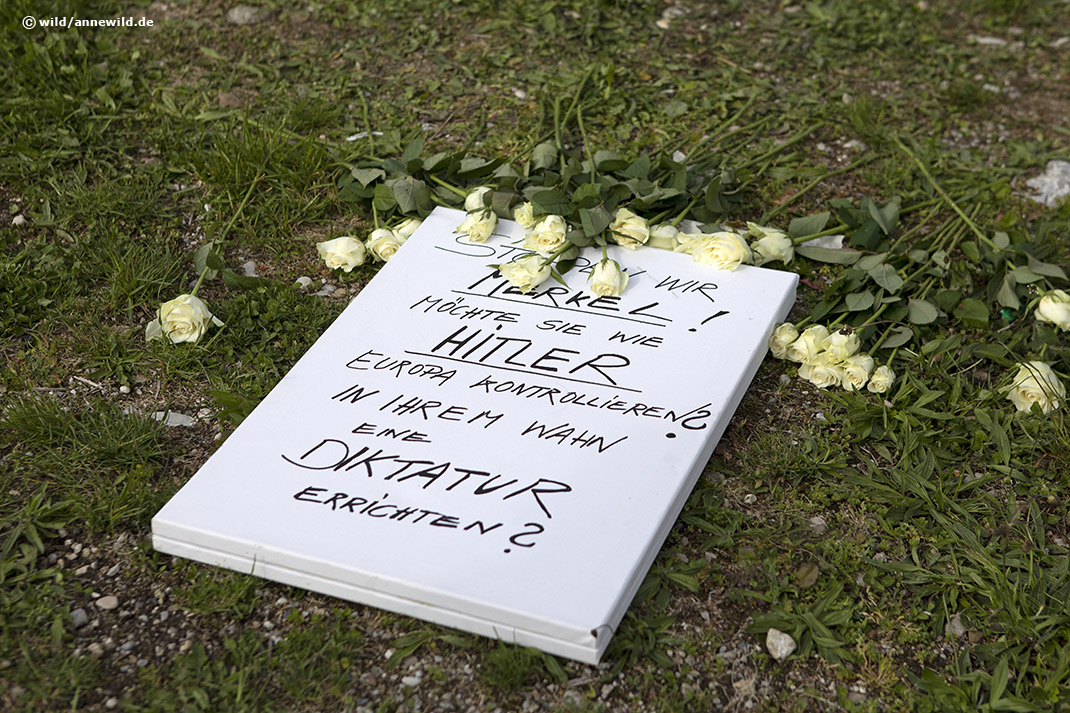 © wild/annewild.de
STOPPEN WIR
MERKEL!
MÖCHTE SIE WIE
HITLER
EUROPA KONTROLLIEREN?
IN IHREM WAHN
EINE
DIKTATUR
ERRICHTEN?